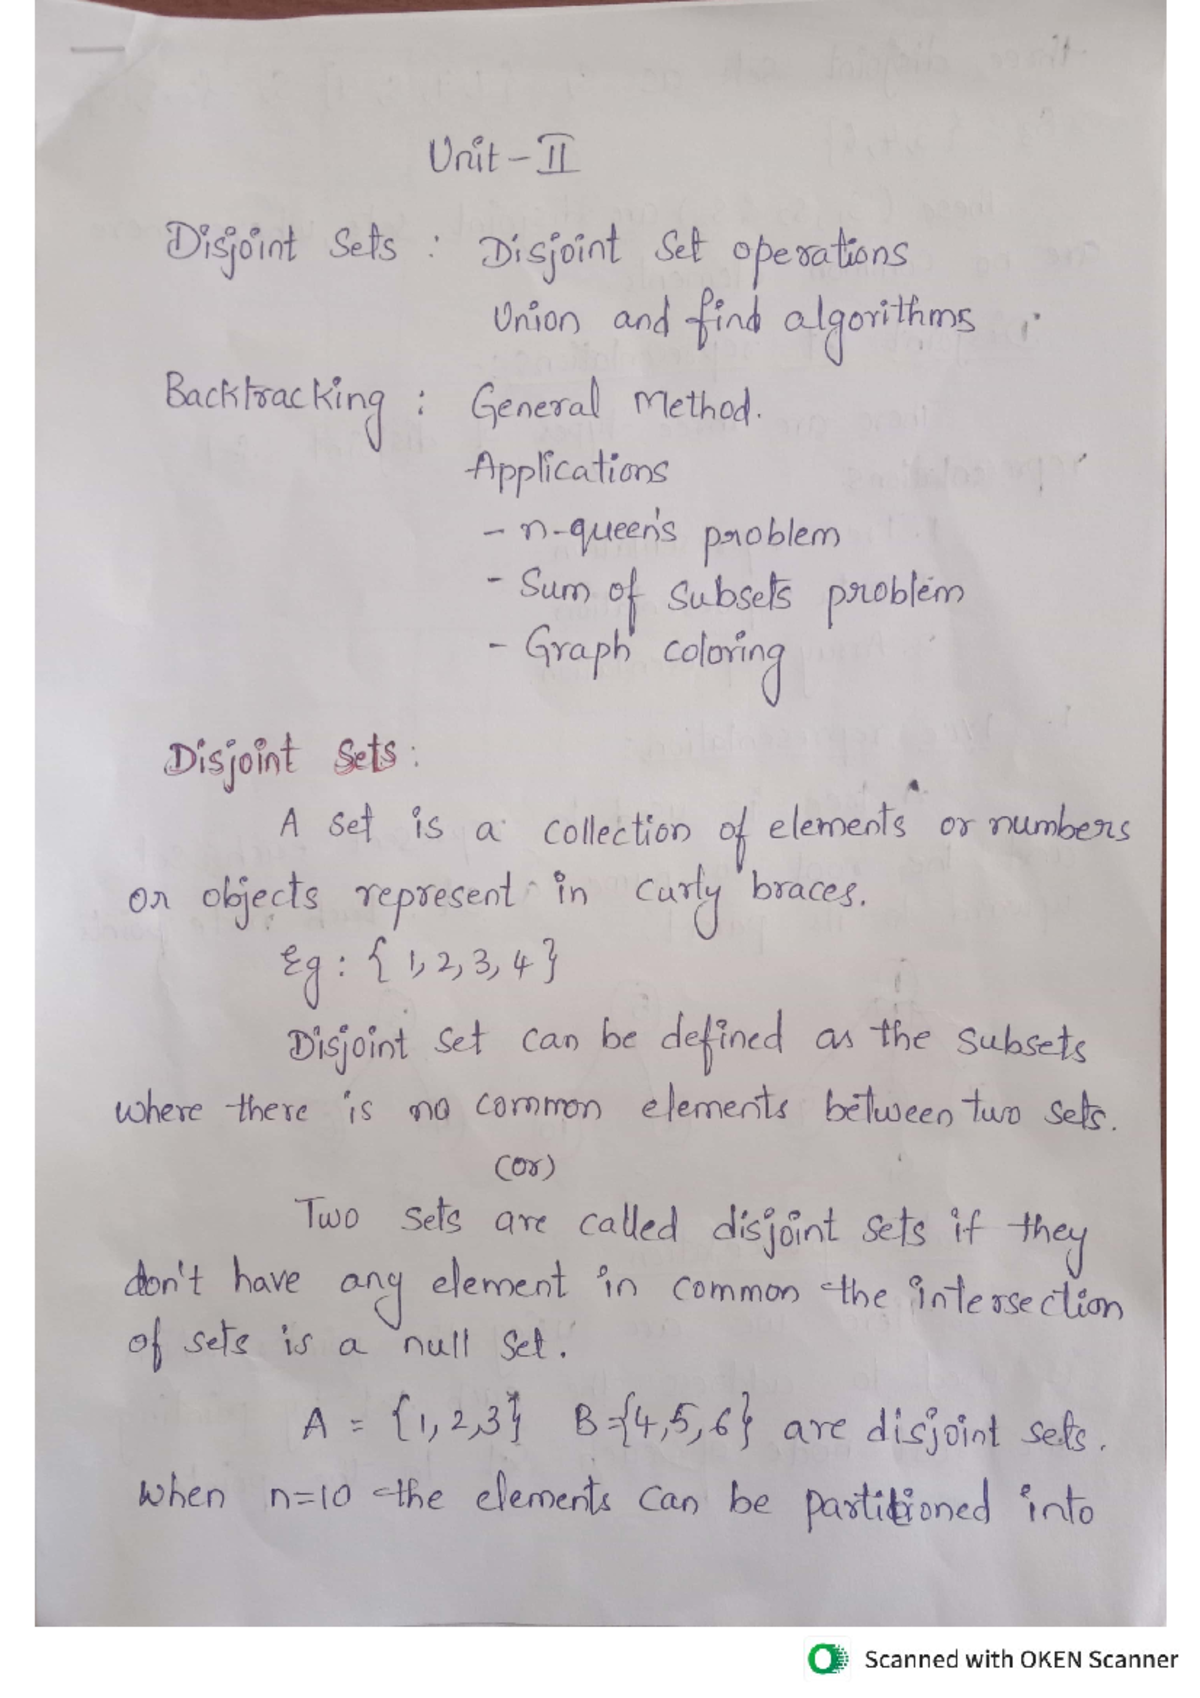 Unit - II
Disjoint Sets : Disjoint Set operations
Union and find algorithms
Backtracking : General Method.
Applications
- n-queen's problem
- Sum of subsets problem
- Graph coloring
Disjoint Sets :
A set is a collection of elements or numbers
or objects represent in curly braces.
Eg : { 1, 2, 3, 4 }
Disjoint set can be defined as the subsets
where there is no common elements between two sets.
(or)
Two sets are called disjoint sets if they
don't have any element in common the intersection
of sets is a null set.
A = {1, 2, 3} B = {4, 5, 6} are disjoint sets.
when n=10 the elements can be partitioned into
Scanned with OKEN Scanner